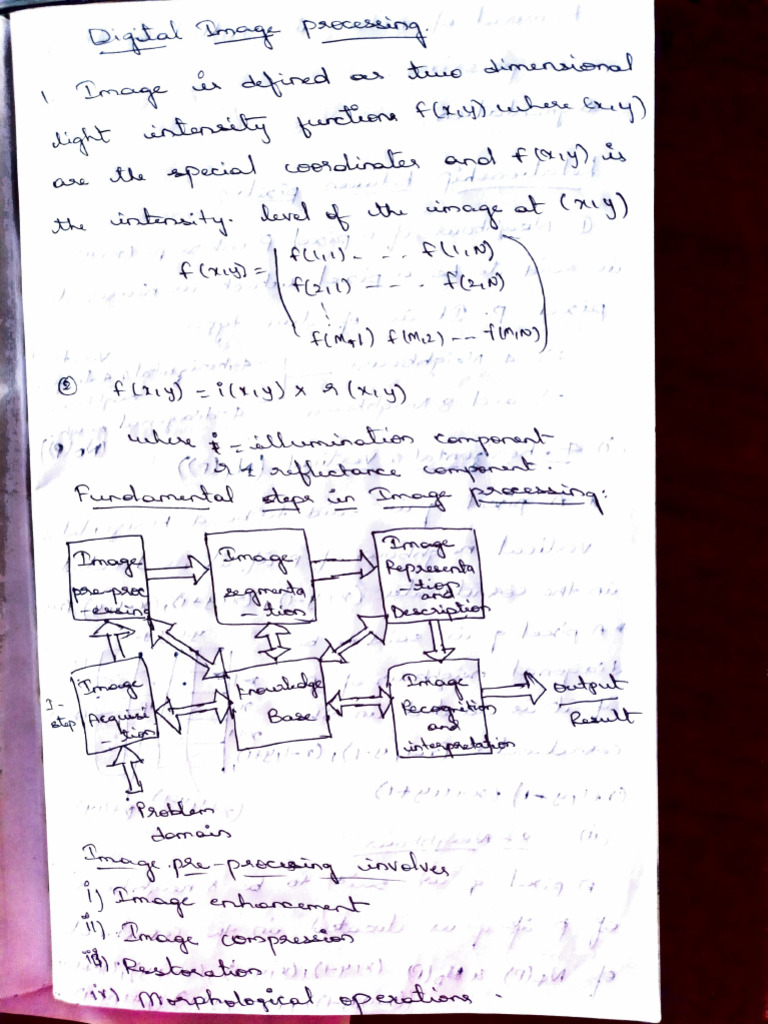 Digital Image processing.
1 Image is defined as two dimensional
light intensity functions f(x,y) where (x,y)
are the special coordinates and f(x,y) is
the intensity. level of the image at (x,y)
f(x,y) = ( f(1,1) - - . f(1,N)
f(2,1) - - . f(2,N)
f(M,1) f(M,2) --- f(M,N) )
② f(x,y) = i(x,y) x r(x,y)
where i = illumination component
r reflectance component.
Fundamental steps in Image processing:
Image
pre-proc
-essing
Image
segmenta
-tion
Image
Representa
-tion
and
Description
I-
step
Image
Acquisi
-tion
Knowledge
Base
Image
Recognition
and
interpretation
output
Result
Problem
domain
Image pre-processing involves
i) Image enhancement
ii) Image compression
iii) Restoration
iv) Morphological operations.